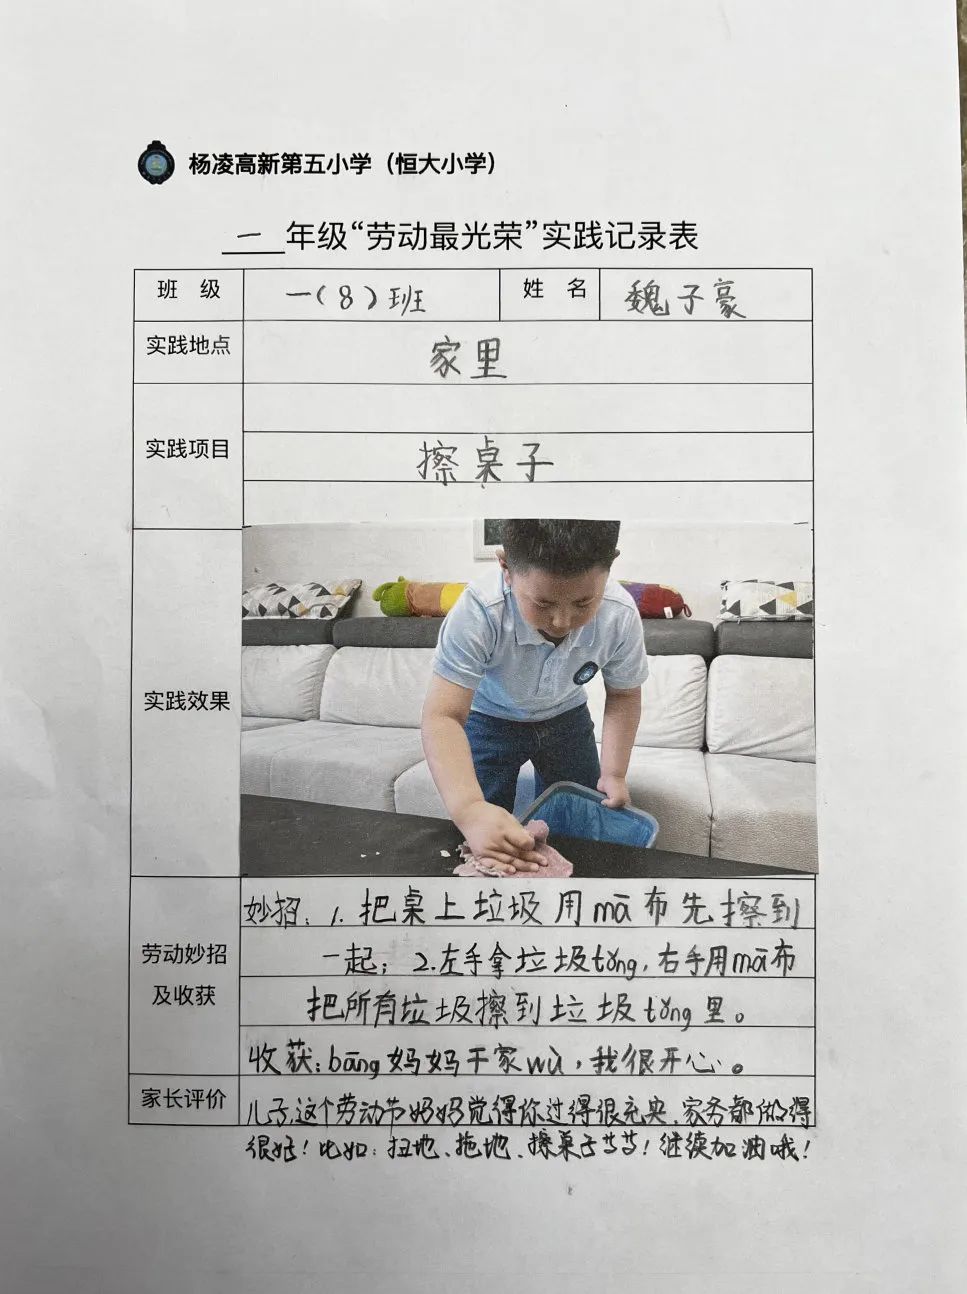 杨凌高新第五小学（恒大小学）
一年级“劳动最光荣”实践记录表
班 级 一（8）班 姓 名 魏子豪
实践地点 家里
实践项目 擦桌子
实践效果
劳动妙招及收获
妙招：1.把桌上垃圾用mā布先擦到
一起；2.左手拿垃圾tǒng，右手用mā布
把所有垃圾擦到垃圾tǒng里。
收获：bāng妈妈干家wù，我很开心。
家长评价 儿子，这个劳动节妈妈觉得你过得很充实，家务都做得
很好！比如：扫地、拖地、擦桌子等等！继续加油哦！